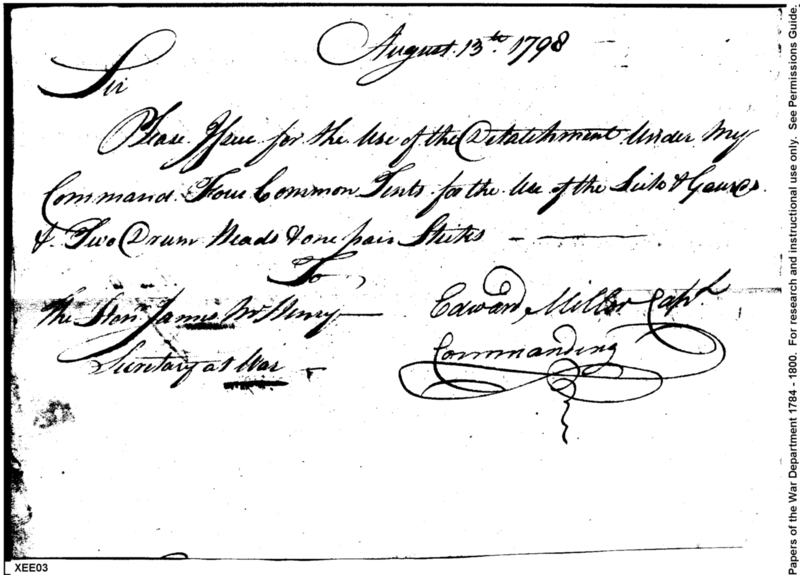 August 13th 1798
Sir
Please Issue for the Use of the Detatchment Under My
Command Four Common Tents for the Use of the Sick & Guards
& Two Drum Heads & one pair Sticks
To
The Hon. James McHenry
Edward Miller Capt
Commanding
Secretary at War
XEE03
Papers of the War Department 1784 - 1800. For research and instructional use only. See Permissions Guide.